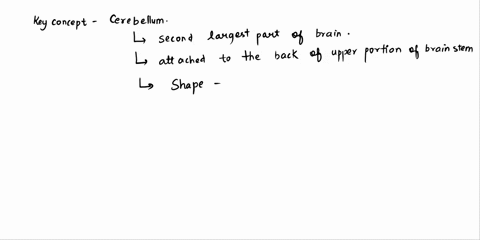 Key concept - Cerebellum.
↳ second largest part of brain.
↳ attached to the back of upper portion of brain stem
↳ Shape -